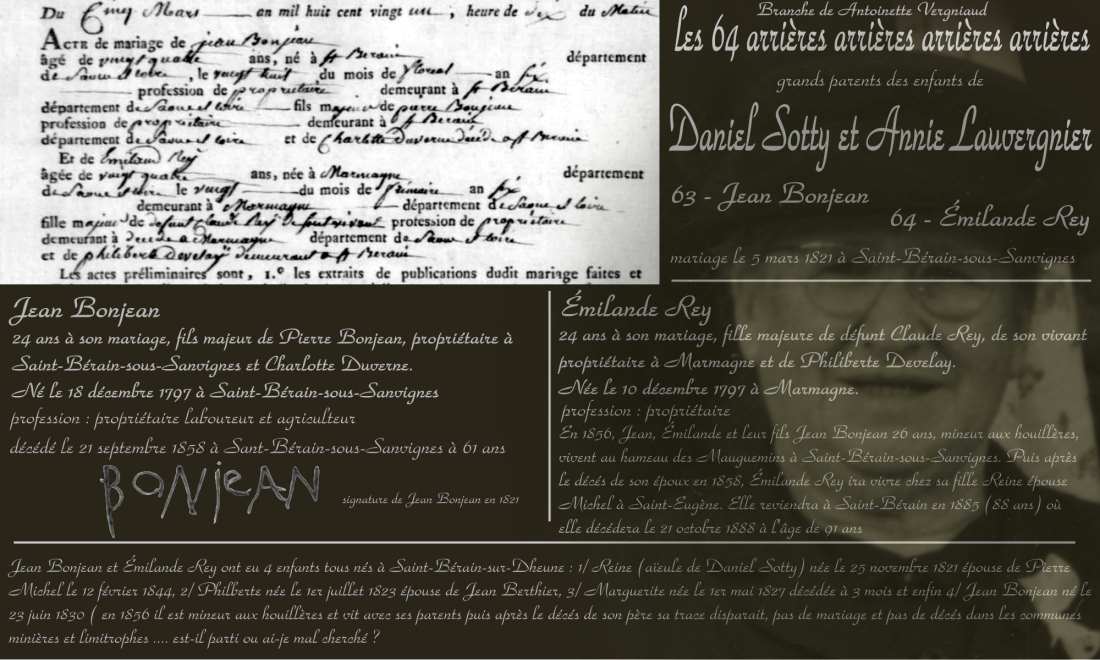 Du Cinq Mars an mil huit cent vingt un, heure de dix du Matin
ACTE de mariage de jean Bonjean
âgé de vingt quatre ans, né à St Berain département
de Saone et loire, le vingt huit du mois de floreal an six
profession de propriétaire demeurant à St Berain
département de Saone et loire fils majeur de pierre Bonjean
profession de propriétaire demeurant à St Berain
département de Saone et loire et de Charlotte Duverne décédé a St Berain
Et de Emiland Rey
âgée de vingt quatre ans, née à Marmagne département
de Saone et loire le vingt du mois de frimaire an six
demeurant à Marmagne département de Saone et loire
fille majeur de defunt Claude Rey de son vivant profession de propriétaire
demeurant à decede a Marmagne département de Saone et loire
et de philiberte Develay demeurant a St Berain
Les actes préliminaires sont, 1.º les extraits de publications dudit mariage faites et
Branche de Antoinette Vergniaud
les 64 arrières arrières arrières arrières
grands parents des enfants de
Daniel Sotty et Annie Lauvergnier
63 - Jean Bonjean
64 - Émilande Rey
mariage le 5 mars 1821 à Saint-Bérain-sous-Sanvignes
Jean Bonjean
24 ans à son mariage, fils majeur de Pierre Bonjean, propriétaire à
Saint-Bérain-sous-Sanvignes et Charlotte Duverne.
Né le 18 décembre 1797 à Saint-Bérain-sous-Sanvignes
profession : propriétaire laboureur et agriculteur
décédé le 21 septembre 1858 à Sant-Bérain-sous-Sanvignes à 61 ans
BONjEAN
signature de Jean Bonjean en 1821
Émilande Rey
24 ans à son mariage, fille majeure de défunt Claude Rey, de son vivant
propriétaire à Marmagne et de Philiberte Develay.
Née le 10 décembre 1797 à Marmagne.
profession : propriétaire
En 1856, Jean, Émilande et leur fils Jean Bonjean 26 ans, mineur aux houillères,
vivent au hameau des Mauguemins à Saint-Bérain-sous-Sanvignes. Puis après
le décés de son époux en 1858, Émilande Rey ira vivre chez sa fille Reine épouse
Michel à Saint-Eugène. Elle reviendra à Saint-Bérain en 1885 (88 ans) où
elle décédera le 21 octobre 1888 à l'âge de 91 ans
Jean Bonjean et Émilande Rey ont eu 4 enfants tous nés à Saint-Bérain-sur-Dheune : 1/ Reine (aïeule de Daniel Sotty) née le 25 novembre 1821 épouse de Pierre
Michel le 12 février 1844, 2/ Philberte née le 1er juillet 1823 épouse de Jean Berthier, 3/ Marguerite née le 1er mai 1827 décédée à 3 mois et enfin 4/ Jean Bonjean né le
23 juin 1830 ( en 1856 il est mineur aux houillères et vit avec ses parents puis après le décés de son père sa trace disparait, pas de mariage et pas de décés dans les communes
minières et limitrophes .... est-il parti ou ai-je mal cherché ?